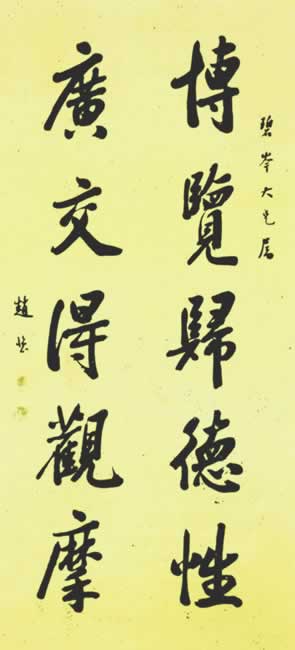 碧岑大兄屬
博覽歸德性
廣交得觀摩
趙